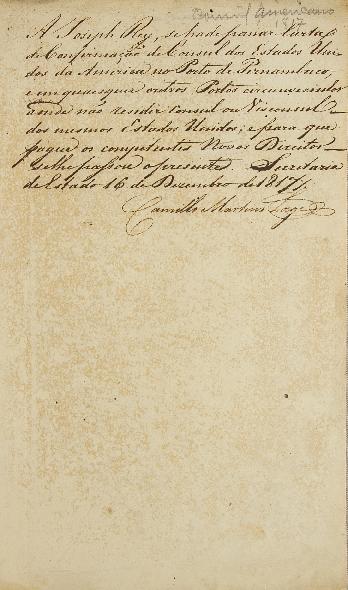 Consul Americano
1817
A Joseph Ray, se hade passar Carta
de Confirmação de Consul dos Estados Uni-
dos da America no Porto de Pernambuco,
e em quaesquer outros Portos circumvisinhos
aonde não residir Consul ou Visconsul
dos mesmos Estados Unidos; e para que
pague os competentes Novos Direitos
se lhe passou o presente. Secretaria
de Estado 16 de Dezembro de 1817,,
Camillo Martins Lage